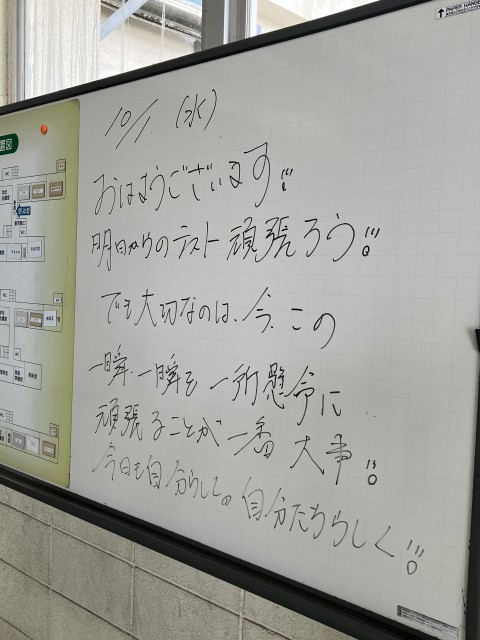 PAPER HANGER
置図
10/1 (水)
おはようございます!!
明日からのテスト頑張ろう!!!
でも大切なのは、今、この
一瞬、一瞬を一所懸命に
頑張ることが一番大事!!
今日も自分らしく。自分たちらしく!!!